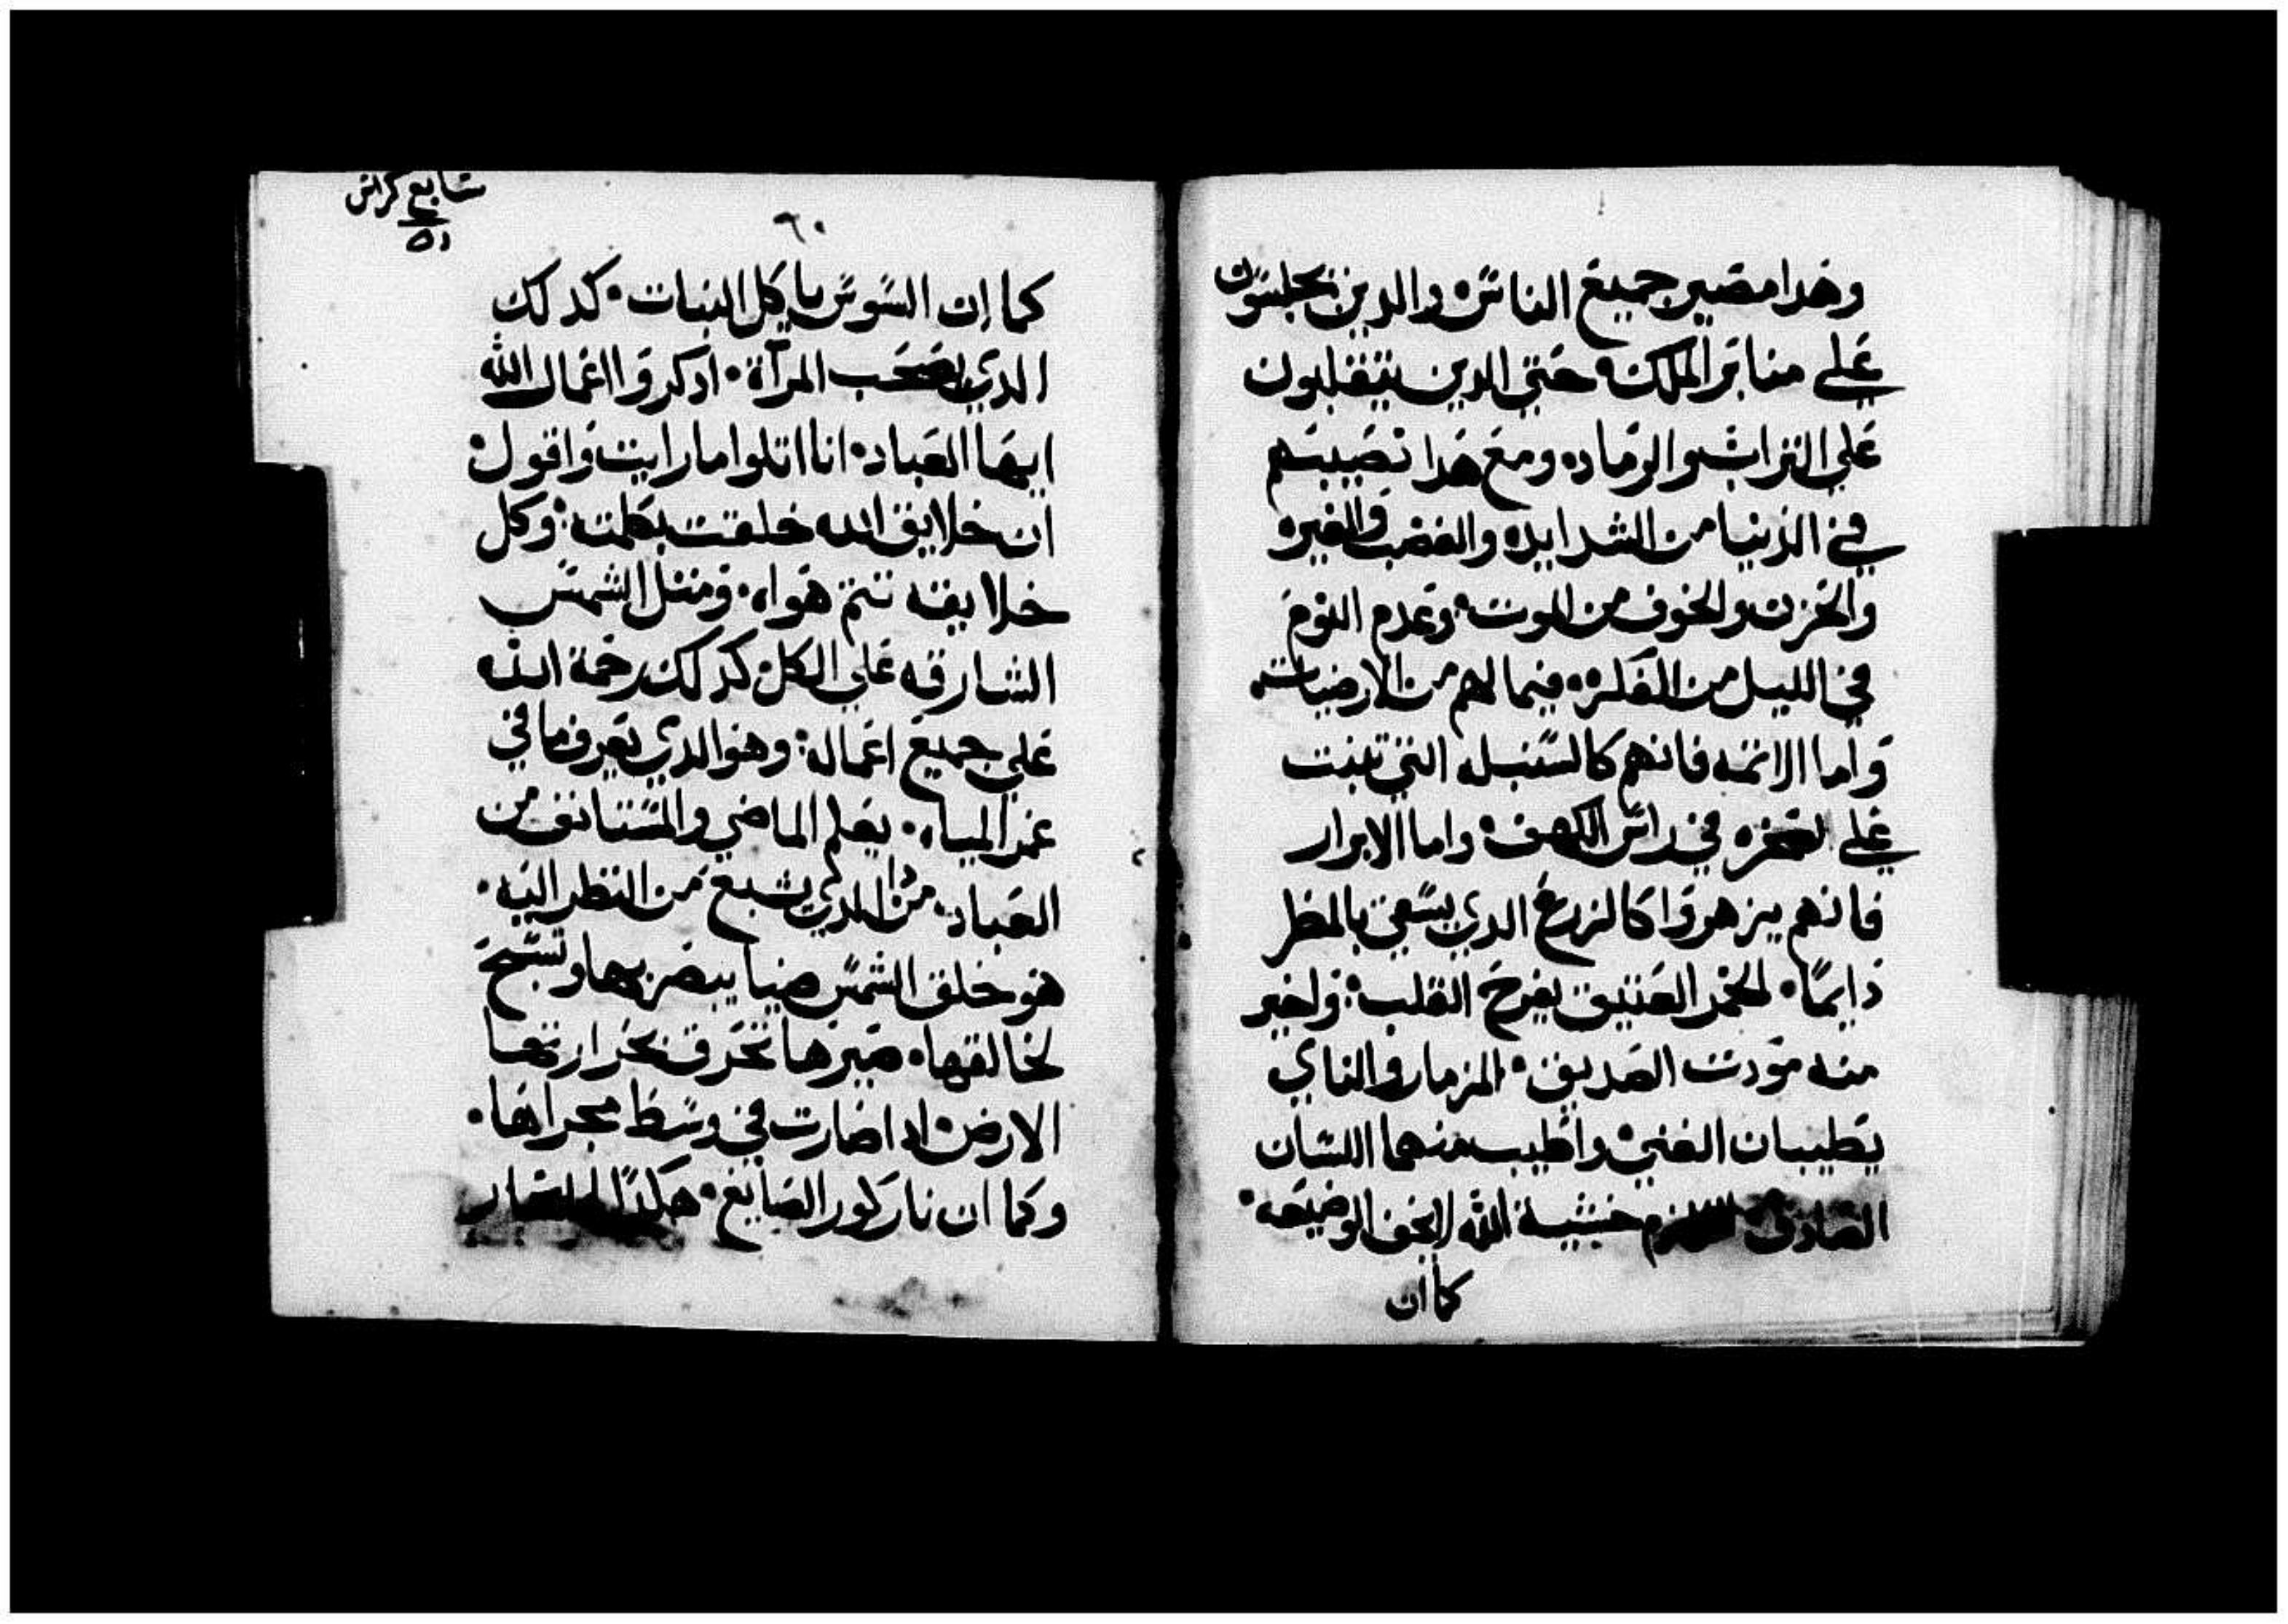 وهدا مصير جميع الناس والدين يجلسون
علي منابر الملك حتي الدين يتقلبون
علي التراب والرماد ومع هدا تصيبهم
في الدنيا من الشدايد والغضب والغيره
والحزن والخوف من الموت وعدم النوم
في الليل من الفكره فيما لهم من الارضيات
واما الاتمه فانهم كالسنبله التي تنبت
علي صخره في راس الكهف واما الابرار
فانهم يزهروا كالزرع الدي يسقي بالمطر
دايمًا الخمر العتيق يفرح القلب واخير
منه مودت الصديق المزمار والناي
يطيبان الغني واطيب منهما اللسان
الصادق خشية الله
كما ان
سابع كراس
٦٠
كما ان السوس ياكل النبات كدلك
الدي يصحب المرآة ادكروا اعمال الله
ايها العباد انا اتلوا ما رايت واقول
ان خلايق الله خلقت بكلمته وكل
خلايقه تتم هواه ومتل الشمس
الشارقه علي الكل كدلك رحمة الله
علي جميع اعماله وهو الدي يعرف ما في
غمر المياه يعلم الماضي والمستانف من
العباد من دا الدي يشبع من النظر اليه
هو خلق الشمس ضيا يبصر بها وتسبح
لخالقها صيرها تحرق بحرارتها
الارض ادا صارت في وسط مجراها
وكما ان نار كور الصايغ هكدا